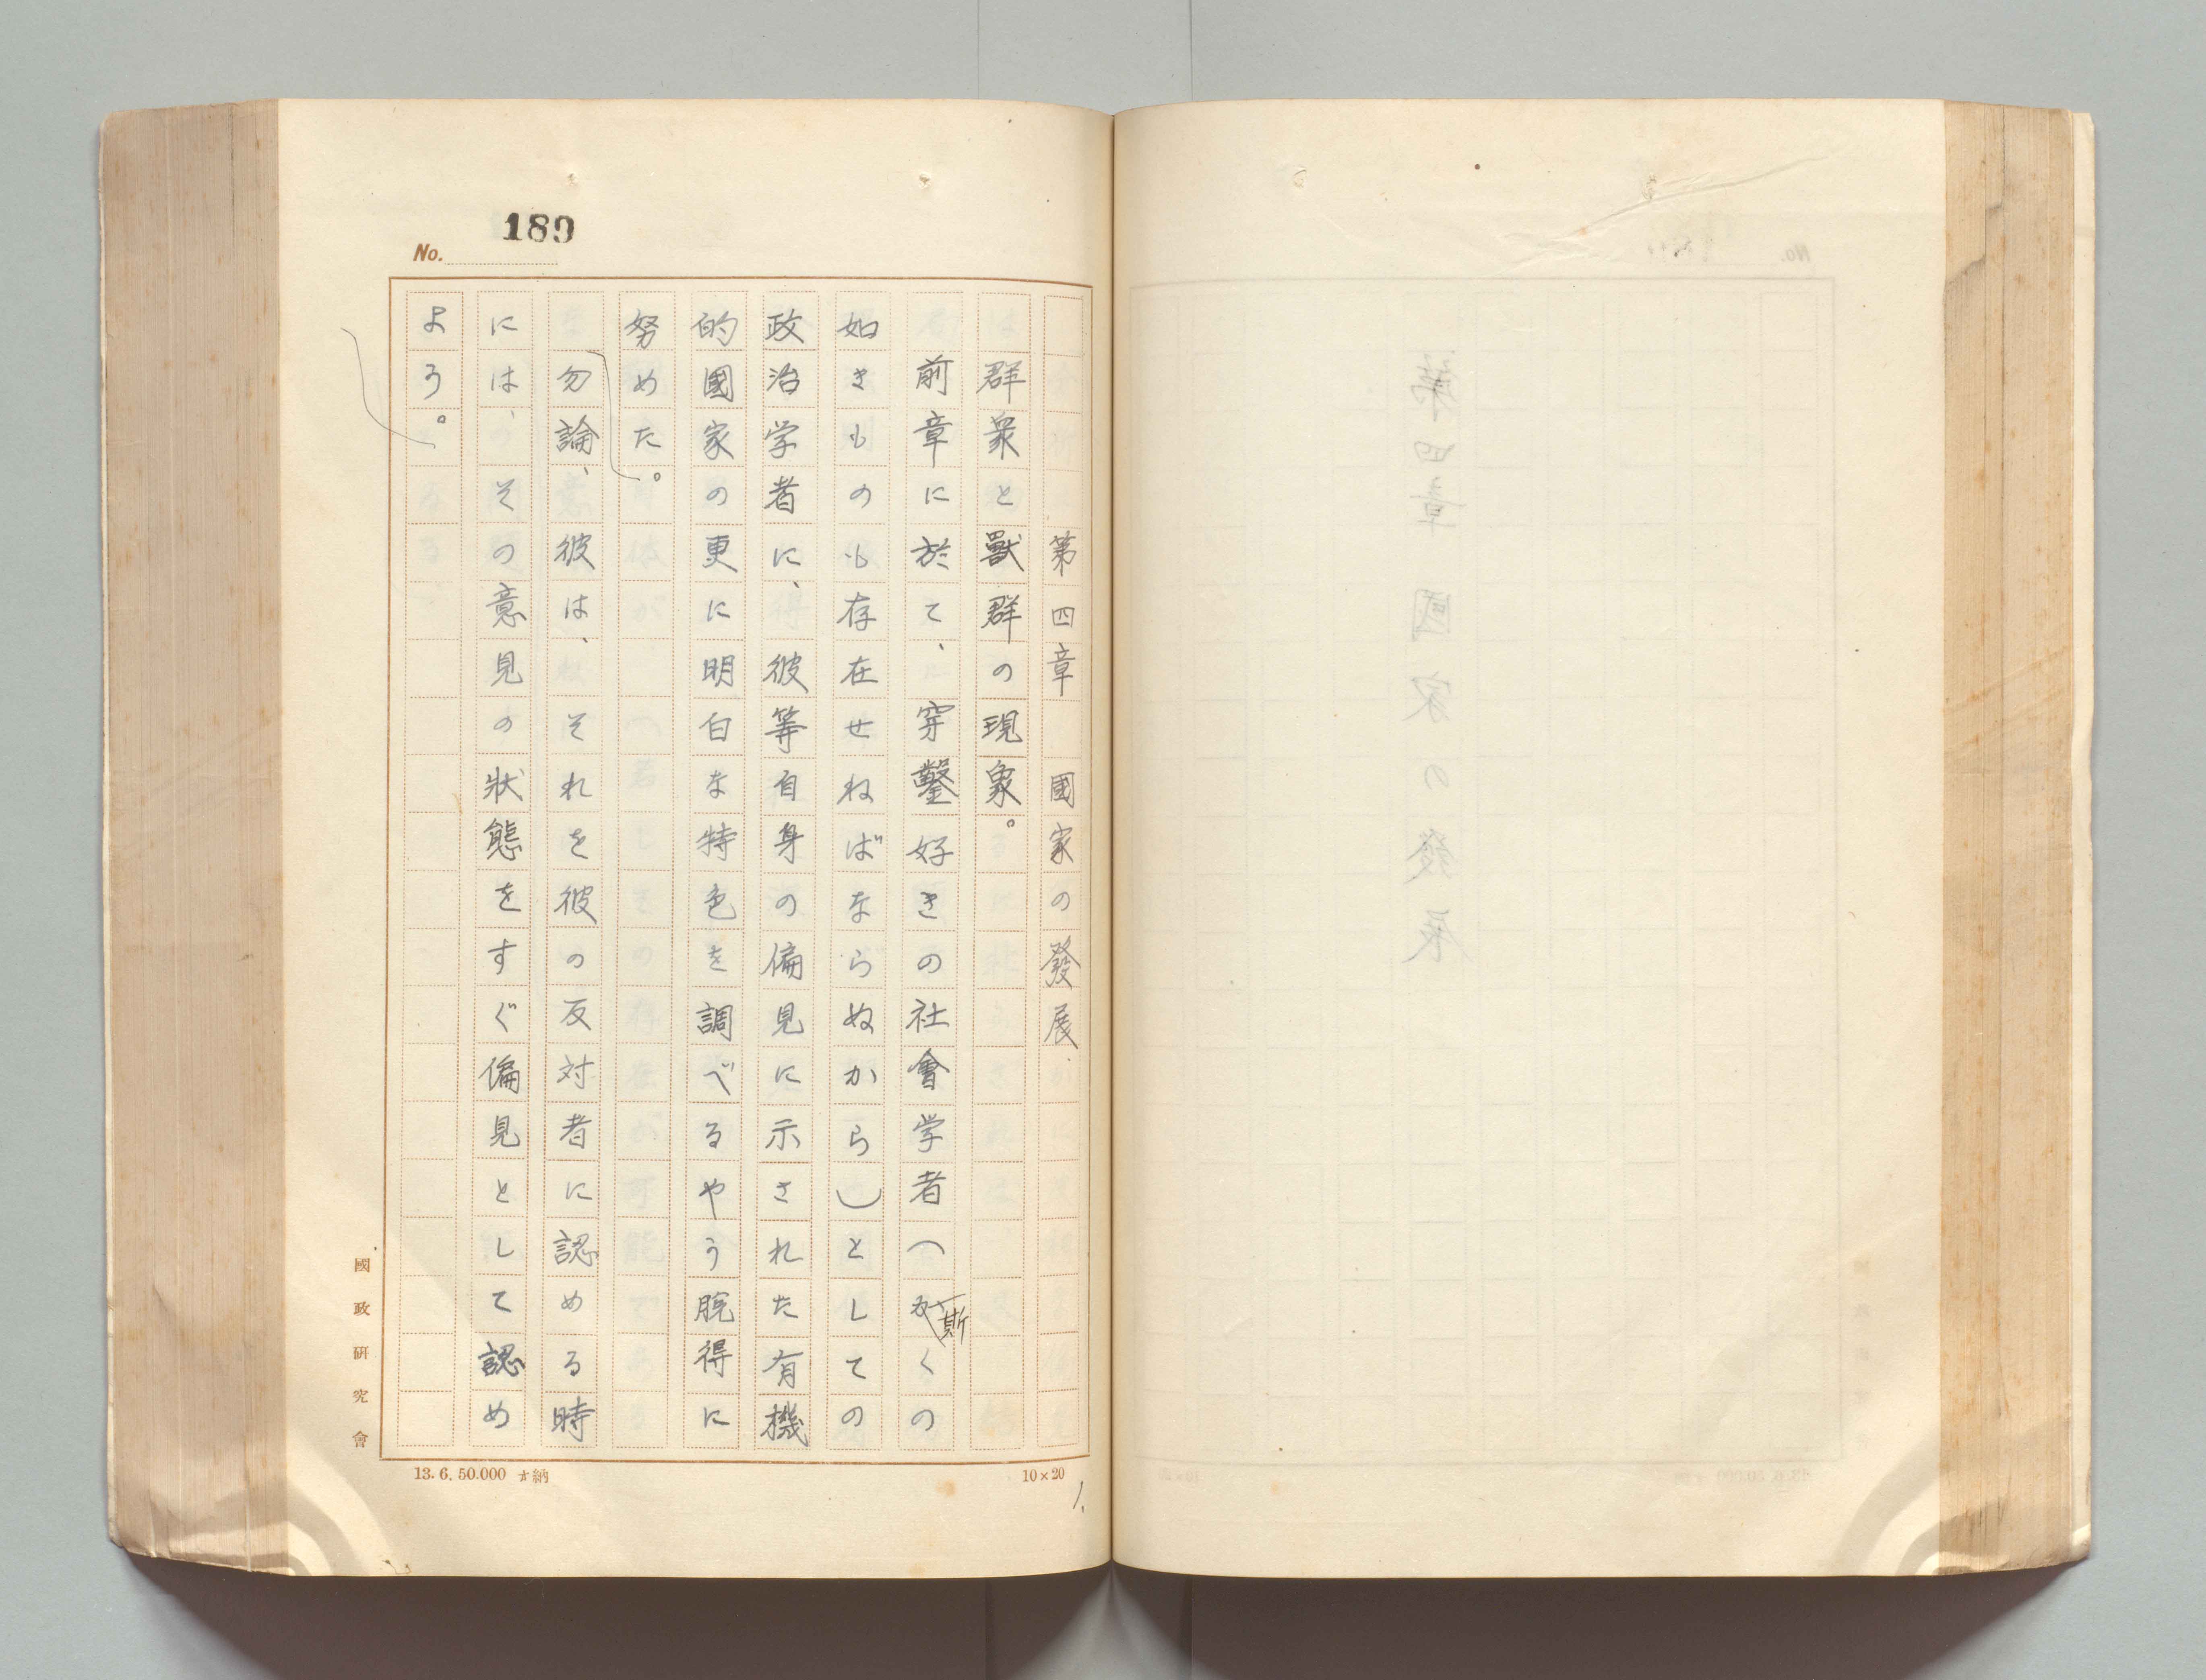 189
No.
第四章 國家の發展
群衆と獸群の現象。
前章に於て、穿鑿好きの社會学者(斯くの
如きものも存在せねばならぬから)としての
政治学者に、彼等自身の偏見に示された有機
的國家の更に明白な特色を調べるやう脱得に
努めた。
勿論、彼は、それを彼の反対者に認める時
には、その意見の狀態をすぐ偏見として認め
よう。
國政研究會
13.6.50.000 才納
10×20
1.